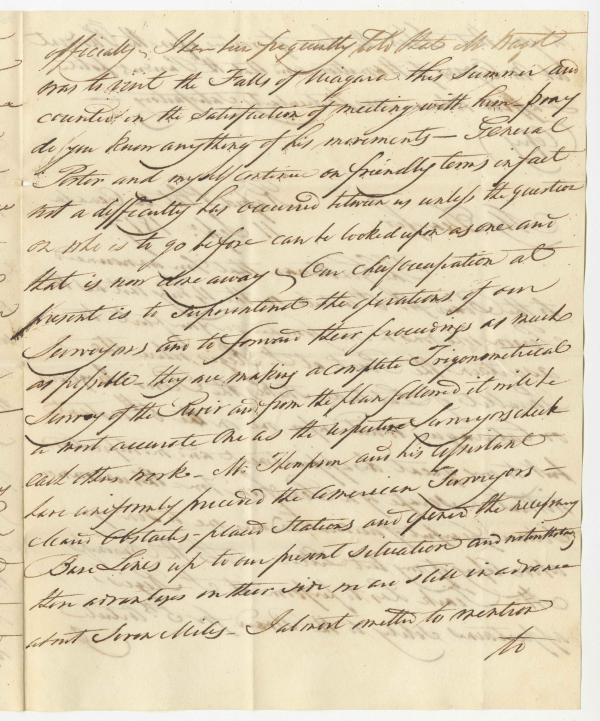 officially – I have been frequently told that Mr. Bagot
was to visit the Falls of Niagara this Summer and
counted on the satisfaction of meeting with him – pray
do you know anything of his movements – General
Porter and myself continue on friendly terms in fact
not a difficulty has occurred between us unless the question
on who is to go before can be looked upon as one and
that is now done away – Our chief occupation at
present is to superintend the operations of our
Surveyors and to forward their proceedings as much
as possible – they are making a complete Trigonometrical
Survey of the River and from the plan followed it will be
a most accurate one as the respective Surveyors check
each others work – Mr. Thompson and his Assistant
have uniformly preceded the American Surveyors –
placed Stations and opened the necessary
Base Lines up to our present situation and notwithstanding
their advantages on their side we are still in advance
about Seven Miles – I almost omitted to mention
to